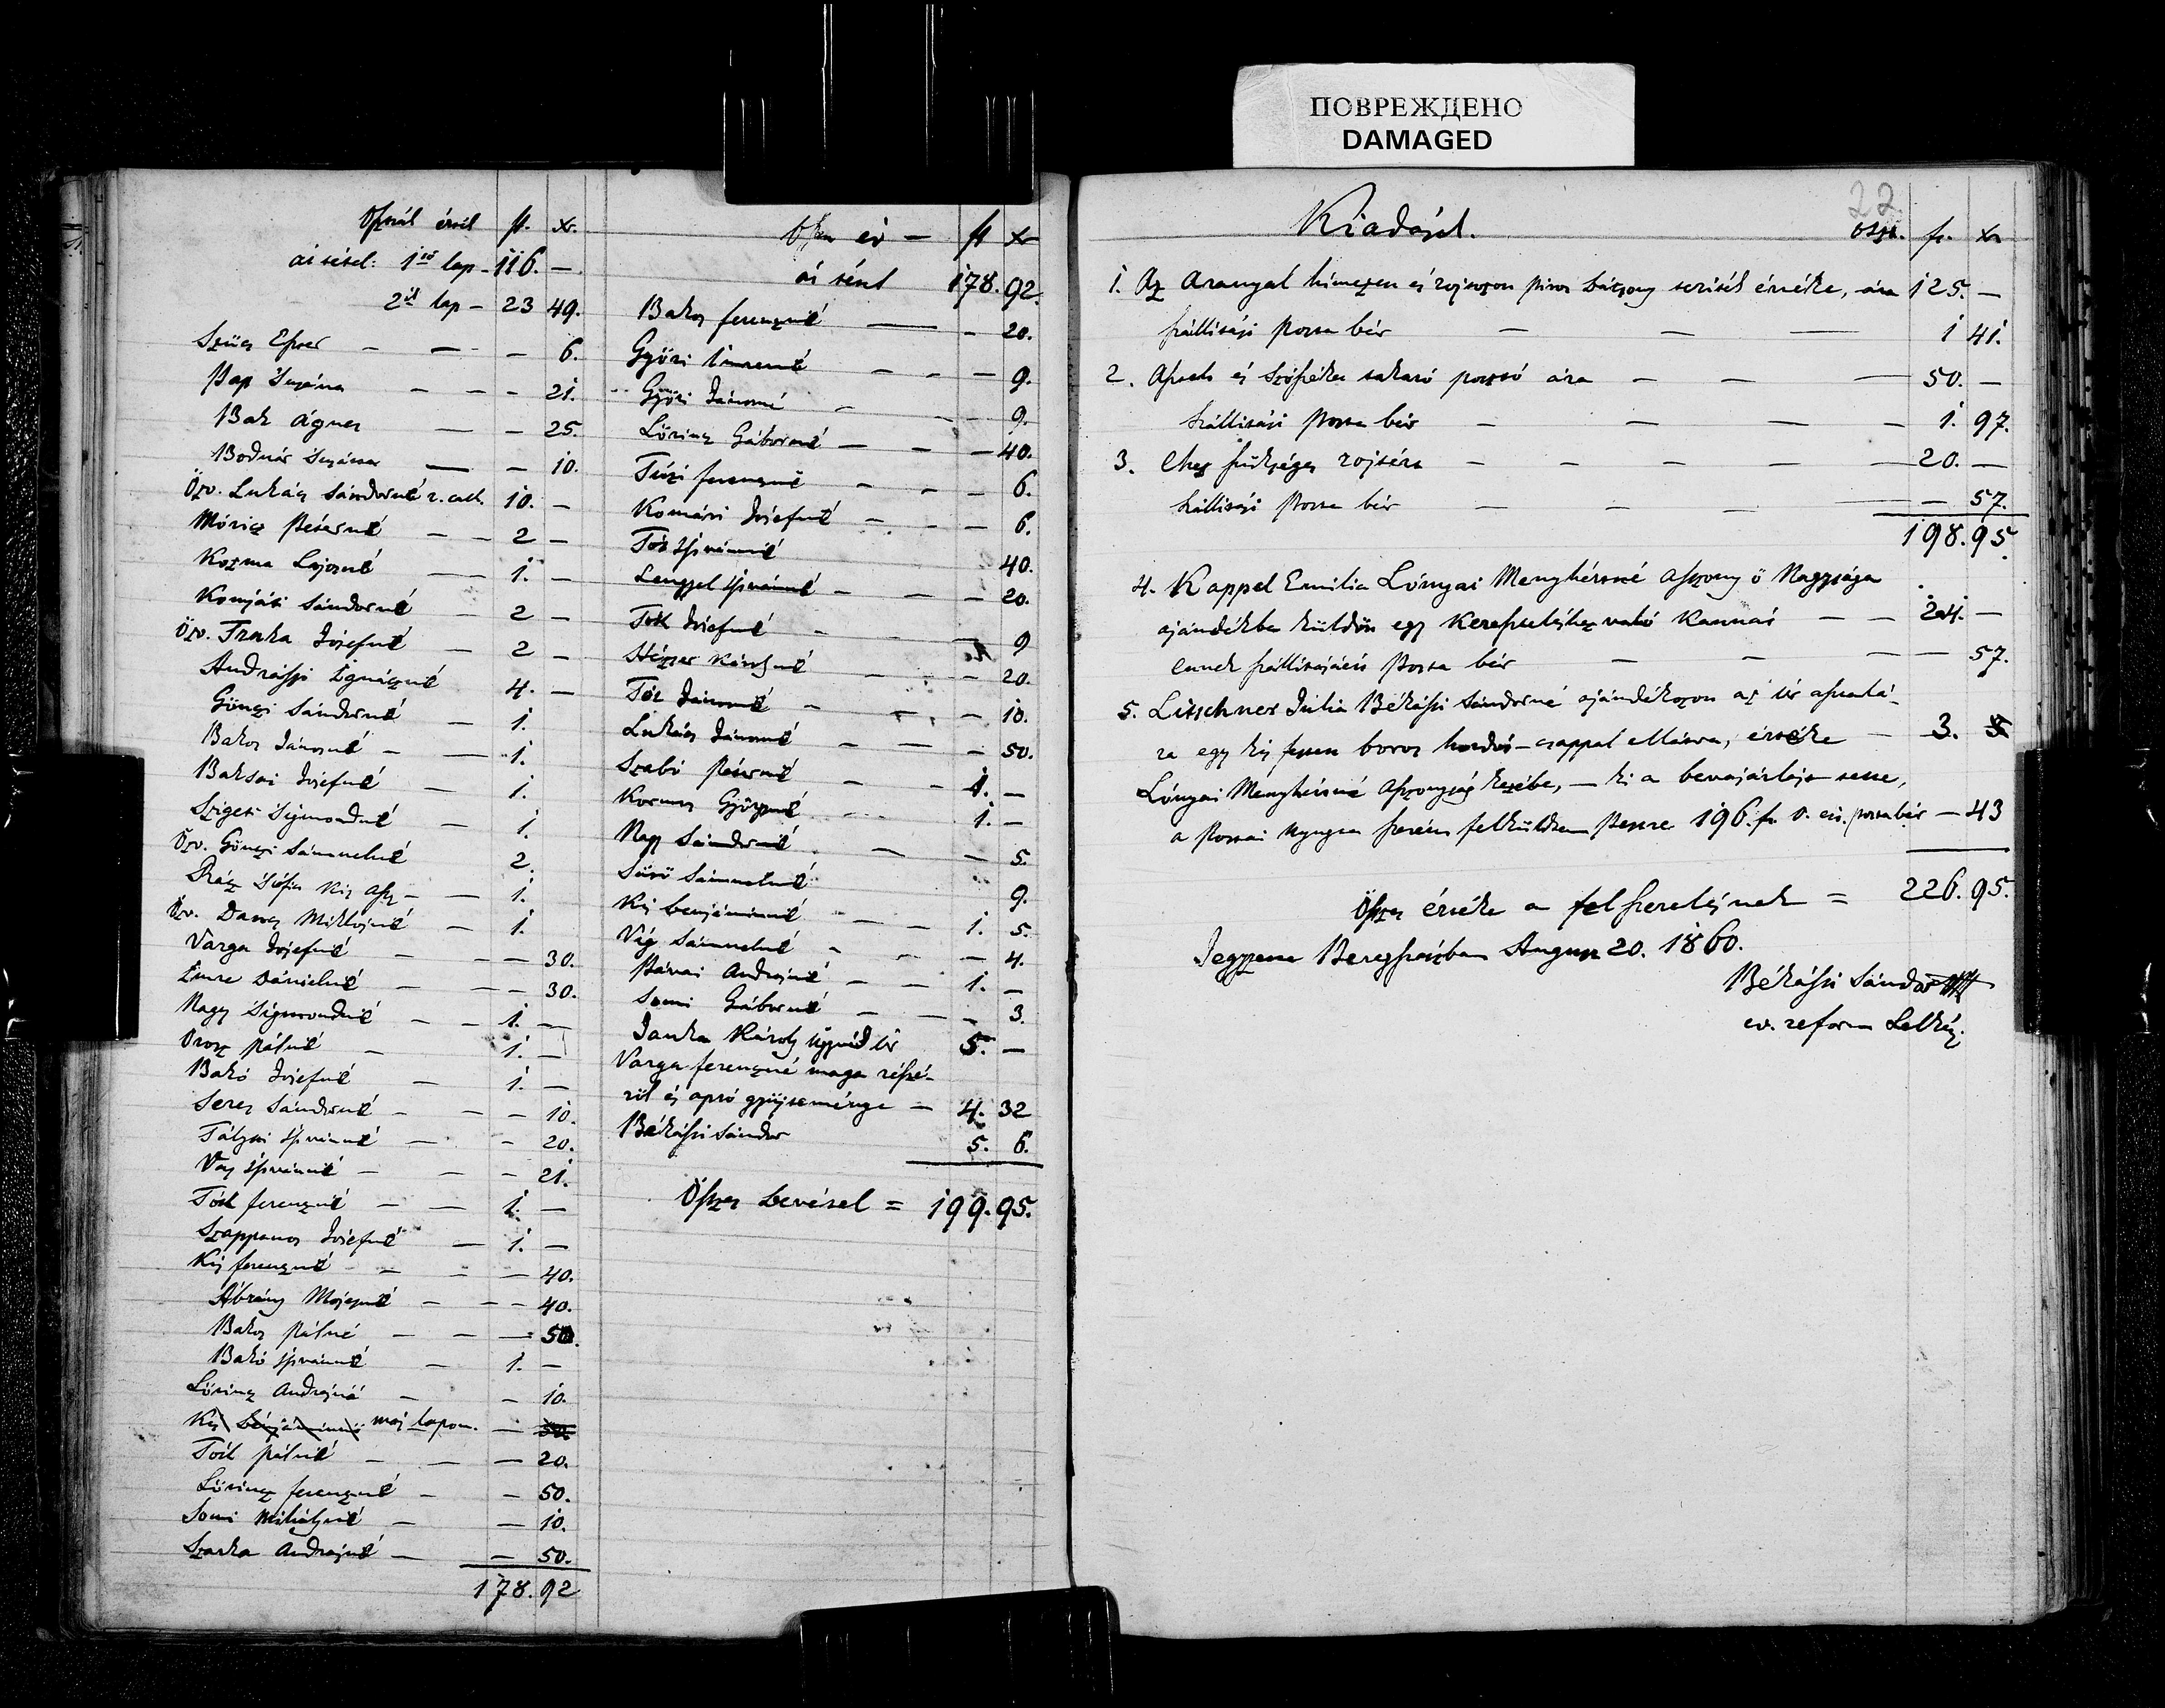 ПОВРЕЖДЕНО
DAMAGED
Osztrák érték ft. xr.
át tétel: 1ső lap - 116. —
2ik lap - 23 49.
Szűcs Eszter — — — 6.
Pap Susána — — — 21.
Bak Ágnes — — 25.
Bodnár Susána — — 10.
Özv. Lukács Sándorné r. cath. 10. —
Móricz Péterné — — 2 —
Kozma Lajosné — 1. —
Komjáti Sándorné — 2 —
Özv. Trska Józsefné — 2 —
Andrássi Ignáczné 4. —
Gönczi Sándorné — 1.
Bakos Jánosné — — 1.
Baksai Józsefné — 1.
Szigeti Sigmondné — 1.
Özv. Gönczi Sámuelné 2.
Rácz Sófia kis assz — — 1.
Özv. Danes Miklósné — 1.
Varga Józsefné — — — 30.
Imre Dánielné — — — 30.
Nagy Sigmondné — — 1. —
Orosz Pálné — 1. —
Bakó Józsefné — 1. —
Seres Sándorné — — — 10.
Tályai Istvánné — — 20.
Vas Istvánné — — — 21.
Tóth ferenczné — — 1. —
Szappanos Józsefné — 1. —
Kis ferenczné — — — 40.
Ábrány Mojzesné — — — 40.
Bakos Pálné — — — 50.
Bakó Istvánné — 1. —
Lőrincz Andrásné — — 10.
Kis Benjáminné más lapon. — 50.
Tóth Pálné — — — 20.
Lőrincz ferenczné — — 50.
Somi Mihályné — — 10.
Szarka Andrásné — — 50.
178. 92
Oszt ér — ft xr
át tétel 178. 92.
Bakos ferenczné — — 20.
Győri Imréné — — — 9.
Győri Jánosné — — 9.
Lőrincz Gáborné — — — 40.
Túri ferenczné — — — 6.
Komári Józsefné — — — 6.
Tót Istvánné 40.
Lengyel Istvánné — — — 20.
Tóth Józsefné — — 9
Hézser Károlyné — — 20.
Tót Jánosné — — — 10.
Lukács Jánosné — — — 50.
Szabó Péterné — — 1. —
Kormos Györgyné — 1. —
Nagy Sándorné — — 5.
Sűrő Sámuelné 9.
Kis benjáminné — — 1. 5.
Vig Sámuelné — — 4.
Pávai Andrásné — — 1. —
Somi Gáborné — — — 3.
Janka Károly ügyvéd úr 5. —
Varga ferenczné maga részé-
ről és apró gyűjteménye — 4. 32
Békássi Sándor 5. 6.
Öszves bevétel = 199. 95.
22
Kiadások. osztr. fr. xr
1. Az Aranyal hímezen és rojtozon piros bársony teríték értéke, ára 125. —
szállítási posta bér — — — 1 41.
2. Asztali és Szószéki takaró posztó ára — — — 50. —
szállítási posta bér — — — — 1. 97.
3. Ehez szükséges rojtára — — — — — 20. —
szállítási posta bér — — — — — 57.
198. 95.
4. Kappel Emilia Lónyai Menyhértné Asszony ő Nagysága
ajándékba küldön egy Kereszteléshez való Kannát — — 24. —
ennek szállításáért posta bér — — — — 57.
5. Litschner Julia Békássi Sándorné ajándékozon az úr asztalá-
ra egy kis festett boros hordót — csappal ellátva, értéke — 3. 5
Lónyai Menyhértné Asszonyság kezébe, — ki a bevásárlást tette,
a postai nyugta szerént felküldtem Pestre 196. fr. o. ért. posta bér — 43
Öszves értéke a felszerelésnek = 226. 95.
Jegyzette Beregszászban August 20. 1860.
Békássi Sándor
ev. reform Lelkész.